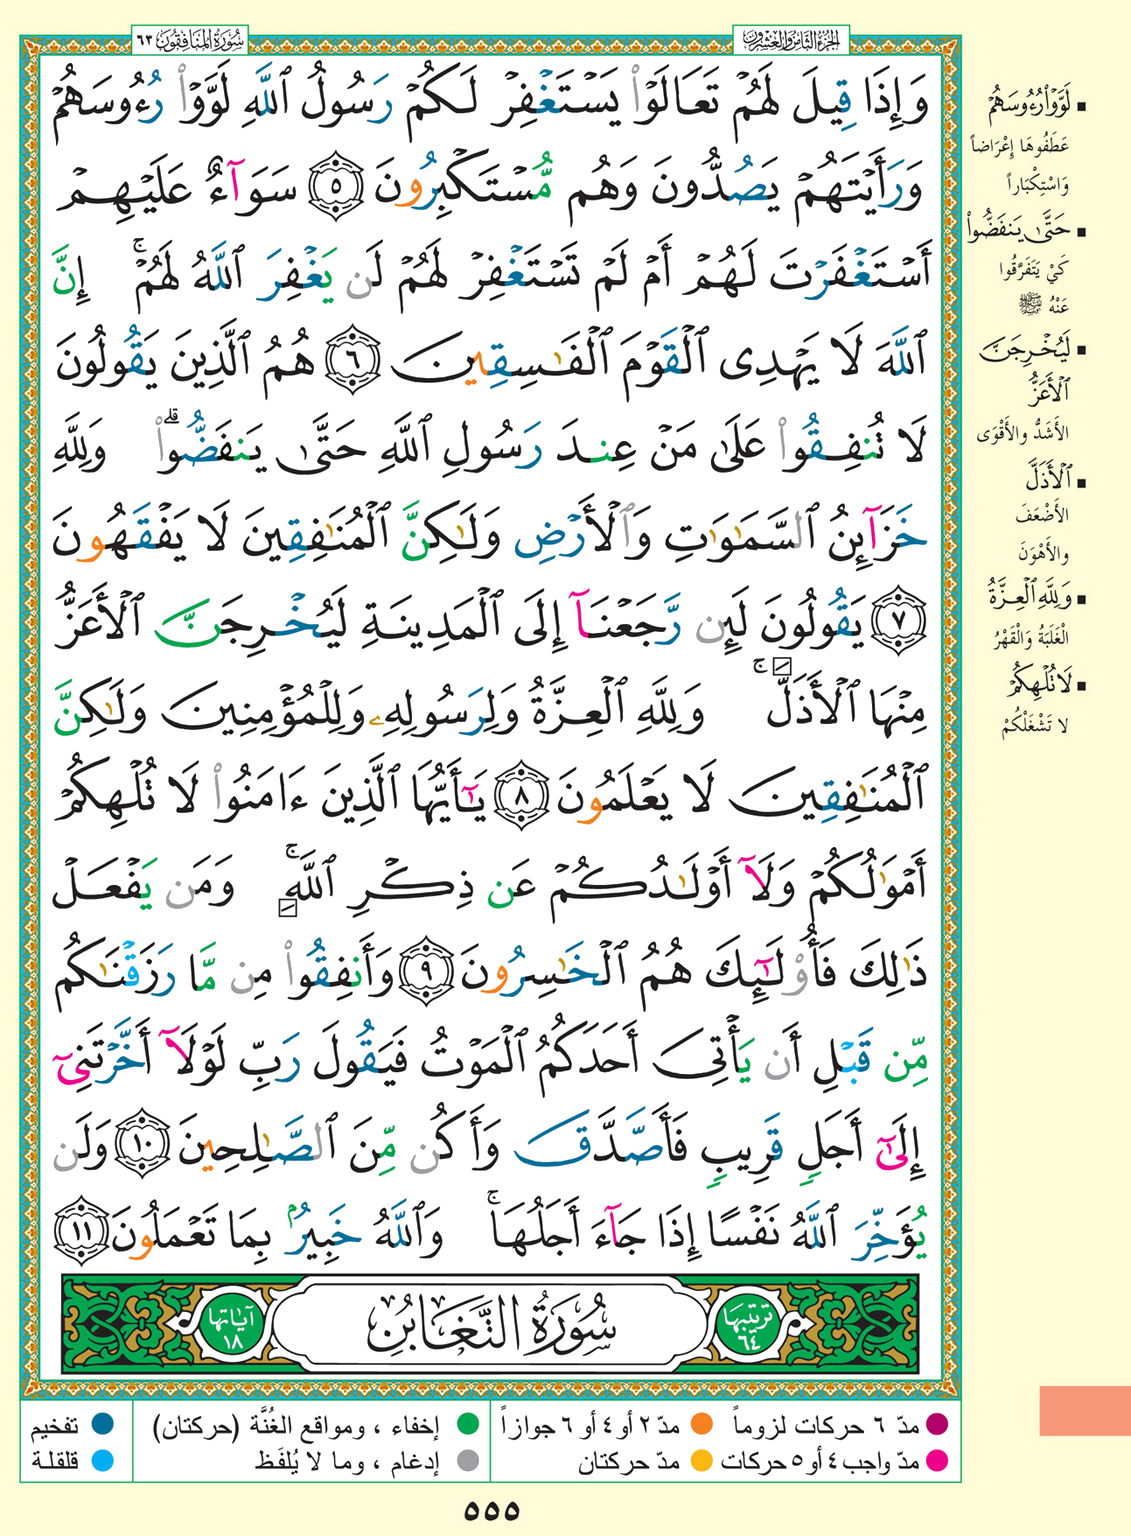 الجزء الثامن والعشرون
سورة المنافقون ٦٣
وَإِذَا قِيلَ لَهُمۡ تَعَالَوۡاْ يَسۡتَغۡفِرۡ لَكُمۡ رَسُولُ ٱللَّهِ لَوَّوۡاْ رُءُوسَهُمۡ
وَرَأَيۡتَهُمۡ يَصُدُّونَ وَهُم مُّسۡتَكۡبِرُونَ ٥ سَوَآءٌ عَلَيۡهِمۡ
أَسۡتَغۡفَرۡتَ لَهُمۡ أَمۡ لَمۡ تَسۡتَغۡفِرۡ لَهُمۡ لَن يَغۡفِرَ ٱللَّهُ لَهُمۡۚ إِنَّ
ٱللَّهَ لَا يَهۡدِى ٱلۡقَوۡمَ ٱلۡفَٰسِقِينَ ٦ هُمُ ٱلَّذِينَ يَقُولُونَ
لَا تُنفِقُواْ عَلَىٰ مَنۡ عِندَ رَسُولِ ٱللَّهِ حَتَّىٰ يَنفَضُّواْۗ وَلِلَّهِ
خَزَآئِنُ ٱلسَّمَٰوَٰتِ وَٱلۡأَرۡضِ وَلَٰكِنَّ ٱلۡمُنَٰفِقِينَ لَا يَفۡقَهُونَ
٧ يَقُولُونَ لَئِن رَّجَعۡنَآ إِلَى ٱلۡمَدِينَةِ لَيُخۡرِجَنَّ ٱلۡأَعَزُّ
مِنۡهَا ٱلۡأَذَلَّۚ وَلِلَّهِ ٱلۡعِزَّةُ وَلِرَسُولِهِۦ وَلِلۡمُؤۡمِنِينَ وَلَٰكِنَّ
ٱلۡمُنَٰفِقِينَ لَا يَعۡلَمُونَ ٨ يَٰٓأَيُّهَا ٱلَّذِينَ ءَامَنُواْ لَا تُلۡهِكُمۡ
أَمۡوَٰلُكُمۡ وَلَآ أَوۡلَٰدُكُمۡ عَن ذِكۡرِ ٱللَّهِۚ وَمَن يَفۡعَلۡ
ذَٰلِكَ فَأُوْلَٰٓئِكَ هُمُ ٱلۡخَٰسِرُونَ ٩ وَأَنفِقُواْ مِن مَّا رَزَقۡنَٰكُم
مِّن قَبۡلِ أَن يَأۡتِىَ أَحَدَكُمُ ٱلۡمَوۡتُ فَيَقُولَ رَبِّ لَوۡلَآ أَخَّرۡتَنِىٓ
إِلَىٰٓ أَجَلٖ قَرِيبٖ فَأَصَّدَّقَ وَأَكُن مِّنَ ٱلصَّٰلِحِينَ ١٠ وَلَن
يُؤَخِّرَ ٱللَّهُ نَفۡسًا إِذَا جَآءَ أَجَلُهَاۚ وَٱللَّهُ خَبِيرُۢ بِمَا تَعۡمَلُونَ ١١
ترتيبها ٦٤
سُورَةُ التَّغَابُنِ
آياتها ١٨
لَوَّوۡاْ رُءُوسَهُمۡ
عَطَفُوهَا إِعْرَاضاً
وَاسْتِكْبَاراً
حَتَّىٰ يَنفَضُّواْ
كَيْ يَتَفَرَّقُوا
عَنْهُ ﷺ
لَيُخۡرِجَنَّ
ٱلۡأَعَزُّ
الأَشَدُّ والأَقْوَى
ٱلۡأَذَلَّ
الأَضْعَفَ
والأَهْوَنَ
وَلِلَّهِ ٱلۡعِزَّةُ
الْغَلَبَةُ وَالْقَهْرُ
لَا تُلۡهِكُمۡ
لا تَشْغَلْكُمْ
مدّ ٦ حركات لزوماً
مدّ ٢ أو ٤ أو ٦ جوازاً
إخفاء ، ومواقع الغُنَّة (حركتان)
تفخيم
مدّ واجب ٤ أو ٥ حركات
مدّ حركتان
إدغام ، وما لا يُلفَظ
قلقلة
٥٥٥